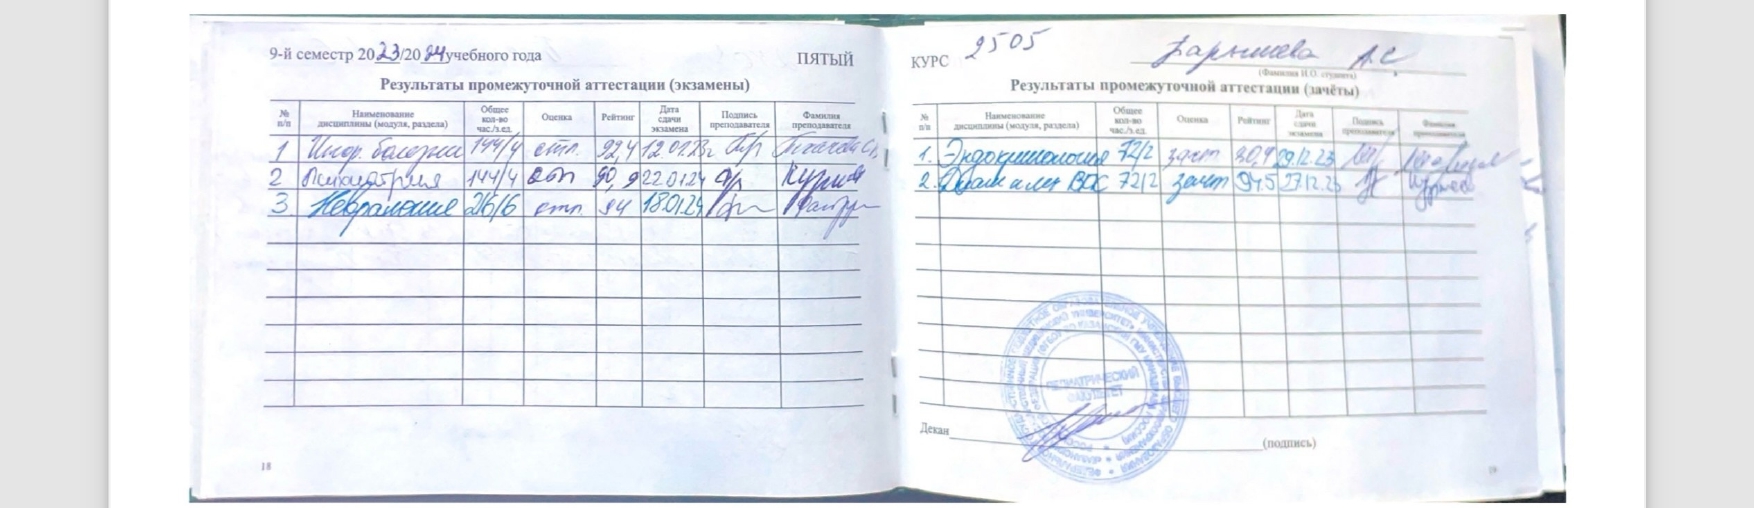 9-й семестр 2023/2024 учебного года ПЯТЫЙ
Результаты промежуточной аттестации (экзамены)
№ п/п Наименование дисциплины (модуля, раздела) Общее кол-во час./з.ед. Оценка Рейтинг Дата сдачи экзамена Подпись преподавателя Фамилия преподавателя
1 Инф. болезни 144/4 отл. 92,4
2 Психиатрия 144/4 отл 90,9 22.01.24
3. Неврология 216/6 отл. 94 18.01.24
18
КУРС 2505 Барышева А.С
(Фамилия И.О. студента)
Результаты промежуточной аттестации (зачёты)
№ п/п Наименование дисциплины (модуля, раздела) Общее кол-во час./з.ед. Оценка Рейтинг Дата сдачи экзамена Подпись преподавателя Фамилия преподавателя
1. Эндокринология 72/2 зачет 90,9 29.12.23
2. 72/2 зачет 94,5 27.12.23
ПЕДИАТРИЧЕСКИЙ
ФАКУЛЬТЕТ
Декан
(подпись)
19